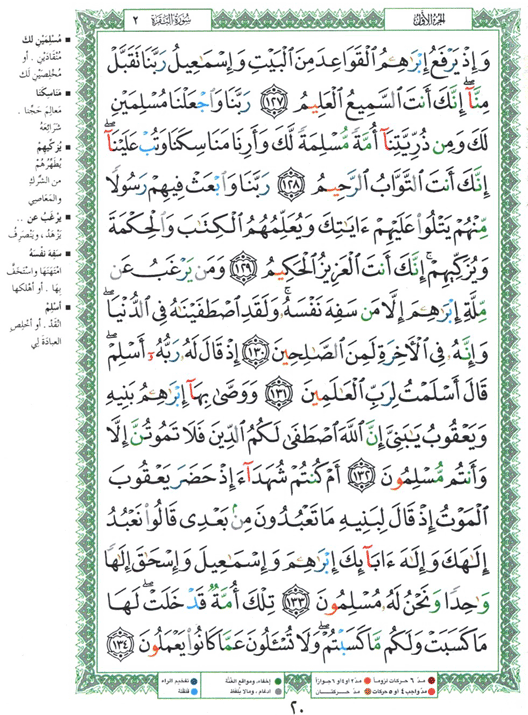 الجزء الأول
سورة البقرة ٢
وَإِذْ يَرْفَعُ إِبْرَٰهِـۧمُ ٱلْقَوَاعِدَ مِنَ ٱلْبَيْتِ وَإِسْمَٰعِيلُ رَبَّنَا تَقَبَّلْ
مِنَّآ إِنَّكَ أَنتَ ٱلسَّمِيعُ ٱلْعَلِيمُ ١٢٧ رَبَّنَا وَٱجْعَلْنَا مُسْلِمَيْنِ
لَكَ وَمِن ذُرِّيَّتِنَآ أُمَّةً مُّسْلِمَةً لَّكَ وَأَرِنَا مَنَاسِكَنَا وَتُبْ عَلَيْنَآ
إِنَّكَ أَنتَ ٱلتَّوَّابُ ٱلرَّحِيمُ ١٢٨ رَبَّنَا وَٱبْعَثْ فِيهِمْ رَسُولًا
مِّنْهُمْ يَتْلُوا۟ عَلَيْهِمْ ءَايَٰتِكَ وَيُعَلِّمُهُمُ ٱلْكِتَٰبَ وَٱلْحِكْمَةَ
وَيُزَكِّيهِمْ إِنَّكَ أَنتَ ٱلْعَزِيزُ ٱلْحَكِيمُ ١٢٩ وَمَن يَرْغَبُ عَن
مِّلَّةِ إِبْرَٰهِـۧمَ إِلَّا مَن سَفِهَ نَفْسَهُۥ وَلَقَدِ ٱصْطَفَيْنَٰهُ فِى ٱلدُّنْيَا
وَإِنَّهُۥ فِى ٱلْءَاخِرَةِ لَمِنَ ٱلصَّٰلِحِينَ ١٣٠ إِذْ قَالَ لَهُۥ رَبُّهُۥٓ أَسْلِمْ
قَالَ أَسْلَمْتُ لِرَبِّ ٱلْعَٰلَمِينَ ١٣١ وَوَصَّىٰ بِهَآ إِبْرَٰهِـۧمُ بَنِيهِ
وَيَعْقُوبُ يَٰبَنِىَّ إِنَّ ٱللَّهَ ٱصْطَفَىٰ لَكُمُ ٱلدِّينَ فَلَا تَمُوتُنَّ إِلَّا
وَأَنتُم مُّسْلِمُونَ ١٣٢ أَمْ كُنتُمْ شُهَدَآءَ إِذْ حَضَرَ يَعْقُوبَ
ٱلْمَوْتُ إِذْ قَالَ لِبَنِيهِ مَا تَعْبُدُونَ مِنۢ بَعْدِى قَالُوا۟ نَعْبُدُ
إِلَٰهَكَ وَإِلَٰهَ ءَابَآئِكَ إِبْرَٰهِـۧمَ وَإِسْمَٰعِيلَ وَإِسْحَٰقَ إِلَٰهًا
وَٰحِدًا وَنَحْنُ لَهُۥ مُسْلِمُونَ ١٣٣ تِلْكَ أُمَّةٌ قَدْ خَلَتْ لَهَا
مَا كَسَبَتْ وَلَكُم مَّا كَسَبْتُمْ وَلَا تُسْـَٔلُونَ عَمَّا كَانُوا۟ يَعْمَلُونَ ١٣٤
مُسْلِمَيْنِ لك
مُنْقَادَيْنِ . أو
مُخْلِصَيْنِ لَك
مَنَاسِكَنَا
مَعَالِمَ حَجِّنا .
شَرَائِعَهُ
يُزَكِّيهِمْ
يُطَهِّرُهُمْ
من الشِّركِ
والمَعَاصِي
يرغَبُ عن ..
يَزْهَدُ ، وينْصَرِفُ
سَفِهَ نَفْسَهُ
امْتَهَنَهَا واستَخَفَّ
بِهَا . أو أهْلَكَها
أسْلِمْ
انْقَدْ . أو أخْلِص
العبادَةَ لِي
مدّ ٦ حركات لزوماً مدّ ٢ أو ٤ أو ٦ جوازاً
مدّ واجب ٤ أو ٥ حركات مدّ حركتان
إخفاء، ومواقع الغُنَّة
ادغام ، ومالا يُلفَظ
تفخيم الراء
قلقلة
٢٠